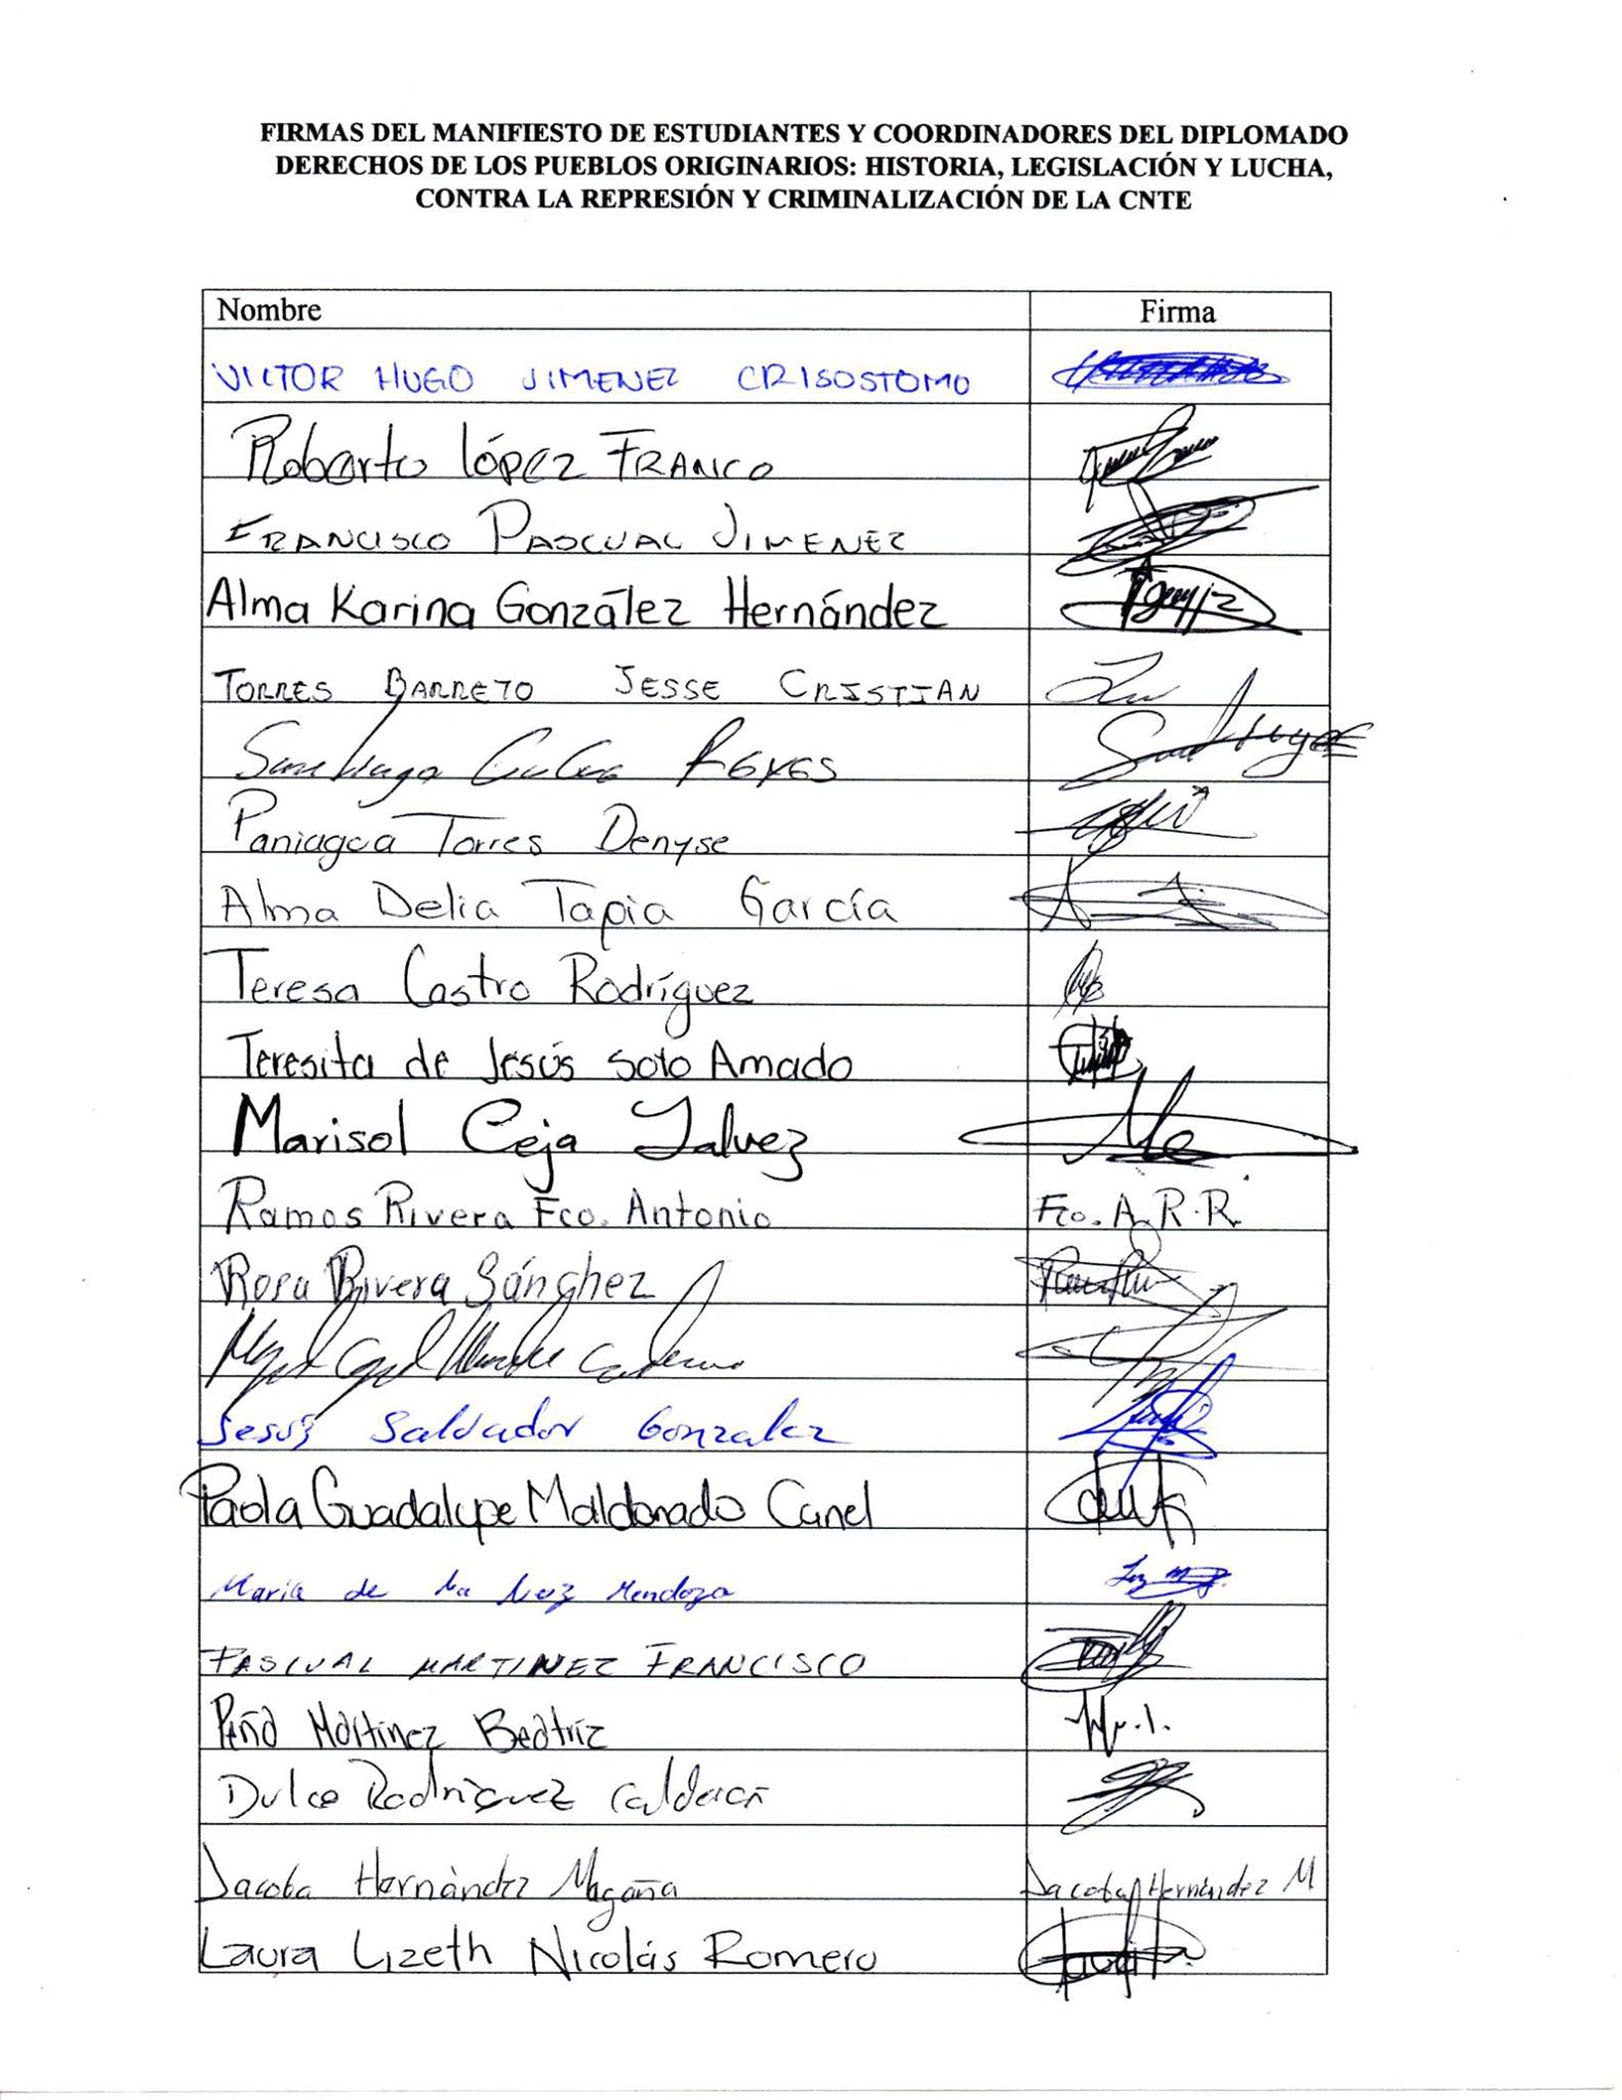 FIRMAS DEL MANIFIESTO DE ESTUDIANTES Y COORDINADORES DEL DIPLOMADO
DERECHOS DE LOS PUEBLOS ORIGINARIOS: HISTORIA, LEGISLACIÓN Y LUCHA,
CONTRA LA REPRESIÓN Y CRIMINALIZACIÓN DE LA CNTE
Nombre Firma
VICTOR HUGO JIMENEZ CRISOSTOMO
Roberto López FRANCO
FRANCISCO PASCUAL JIMENEZ
Alma Karina González Hernández
TORRES BARRETO JESSE CRISTIAN
Santiago REYES
Paniagua Torres Denyse
Alma Delia Tapia García
Teresa Castro Rodríguez
Teresita de Jesús Soto Amado
Marisol Ceja Galvez
Ramos Rivera Fco. Antonio Fco. A. R. R.
Rosa Rivera Sánchez
Jesús Salvador Gonzalez
Paola Guadalupe Maldonado Canel
Maria de la Luz Mendoza
PASCUAL MARTINEZ FRANCISCO
Peña Martinez Beatriz
Dulce Rodríguez Calderón
Jacoba Hernández Magaña Jacoba Hernández M
Laura Lizeth Nicolás Romero